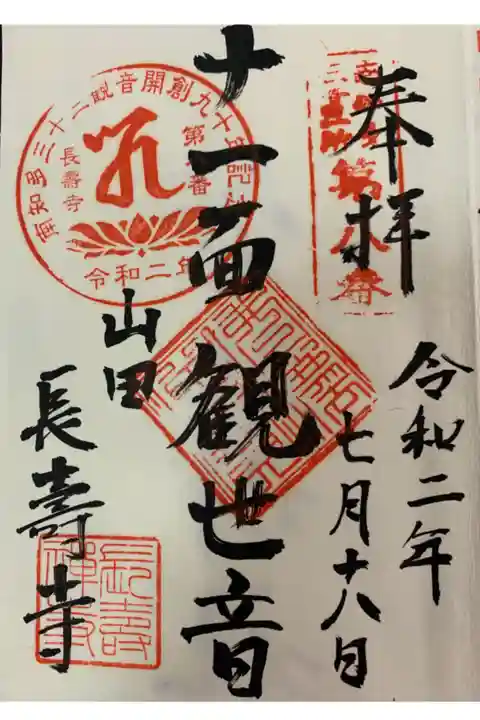 奉拝
令和二年
七月十八日
十一面観世音
山田
長壽寺
南知多三十三観音開創九十
長壽寺
令和二年
第八番
長壽